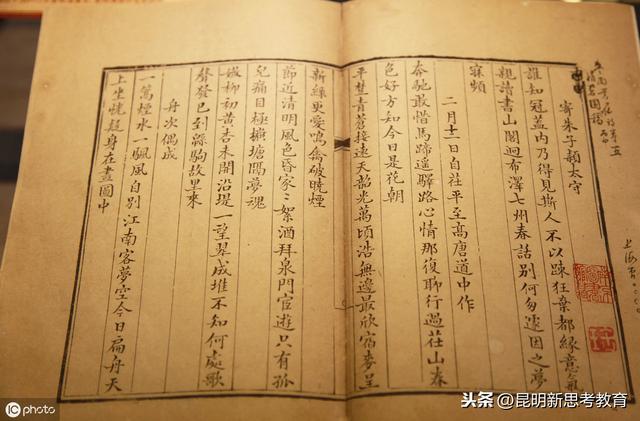 寄朱子頴太守
誰知冠蓋内乃得見斯人不以踈狂棄都緣意氣
親讀書山閣迥布澤七州春話别何匆遽因之夢
寐頻
二月十二日自茌平至高唐道中作
奔馳敢惜馬蹄遥驛路心情那復聊行過茌山春
色好方知今日是花朝
平楚青蒼接遠天韶光萬頃浩無邊最欣宿麥呈
新綠更愛鳴禽破曉煙
節近清明風色昏家〻絮酒拜泉門官遊只有孤
兒痛目極橫塘隔夢魂
嫩柳初黄杏未開沿堤一望翠成堆不知何處歌
聲發已到緜駒故里來
舟次偶成
一篙煙水一颿風自别江南客夢空今日扁舟天
上坐恍疑身在畫圖中
iC photo
头条 @昆明新思考教育